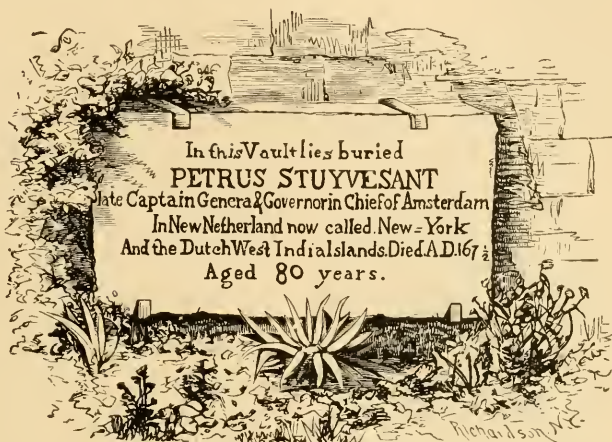 In this Vault lies buried
PETRUS STUYVESANT
late Captain General & Governor in Chief of Amsterdam
In New Netherland now called New=York
And the Dutch West India Islands. Died A.D. 167½
Aged 80 years.
Richardson, N.Y.